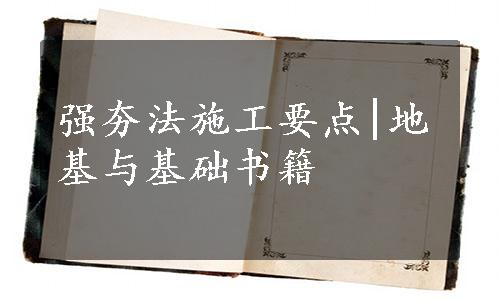 强夯法施工要点|地
基与基础书籍